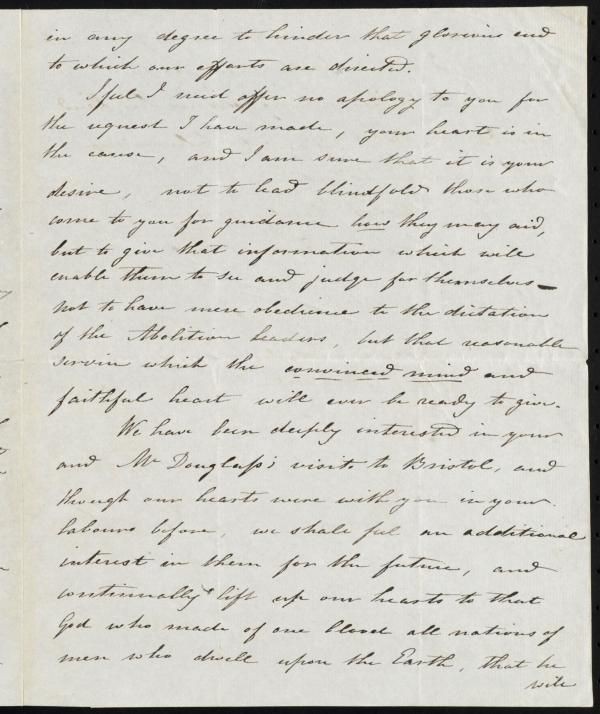 in any degree to hinder that glorious end
to which our efforts are directed.
I feel I need offer no apology to you for
the request I have made, your heart is in
the cause, and I am sure that it is your
desire, not to lead blindfold those who
come to you for guidance how they may aid,
but to give that information which will
enable them to see and judge for themselves—
not to have mere obedience to the dictation
of the Abolition leaders, but that reasonable
service which the convinced mind and
faithful heart will ever be ready to give.
We have been deeply interested in your
and Mr Douglass's visits to Bristol, and
though our hearts were with you in your
labours before, we shall feel an additional
interest in them for the future, and
continually lift up our hearts to that
God who made of one blood all nations of
men who dwell upon the Earth, that he
will